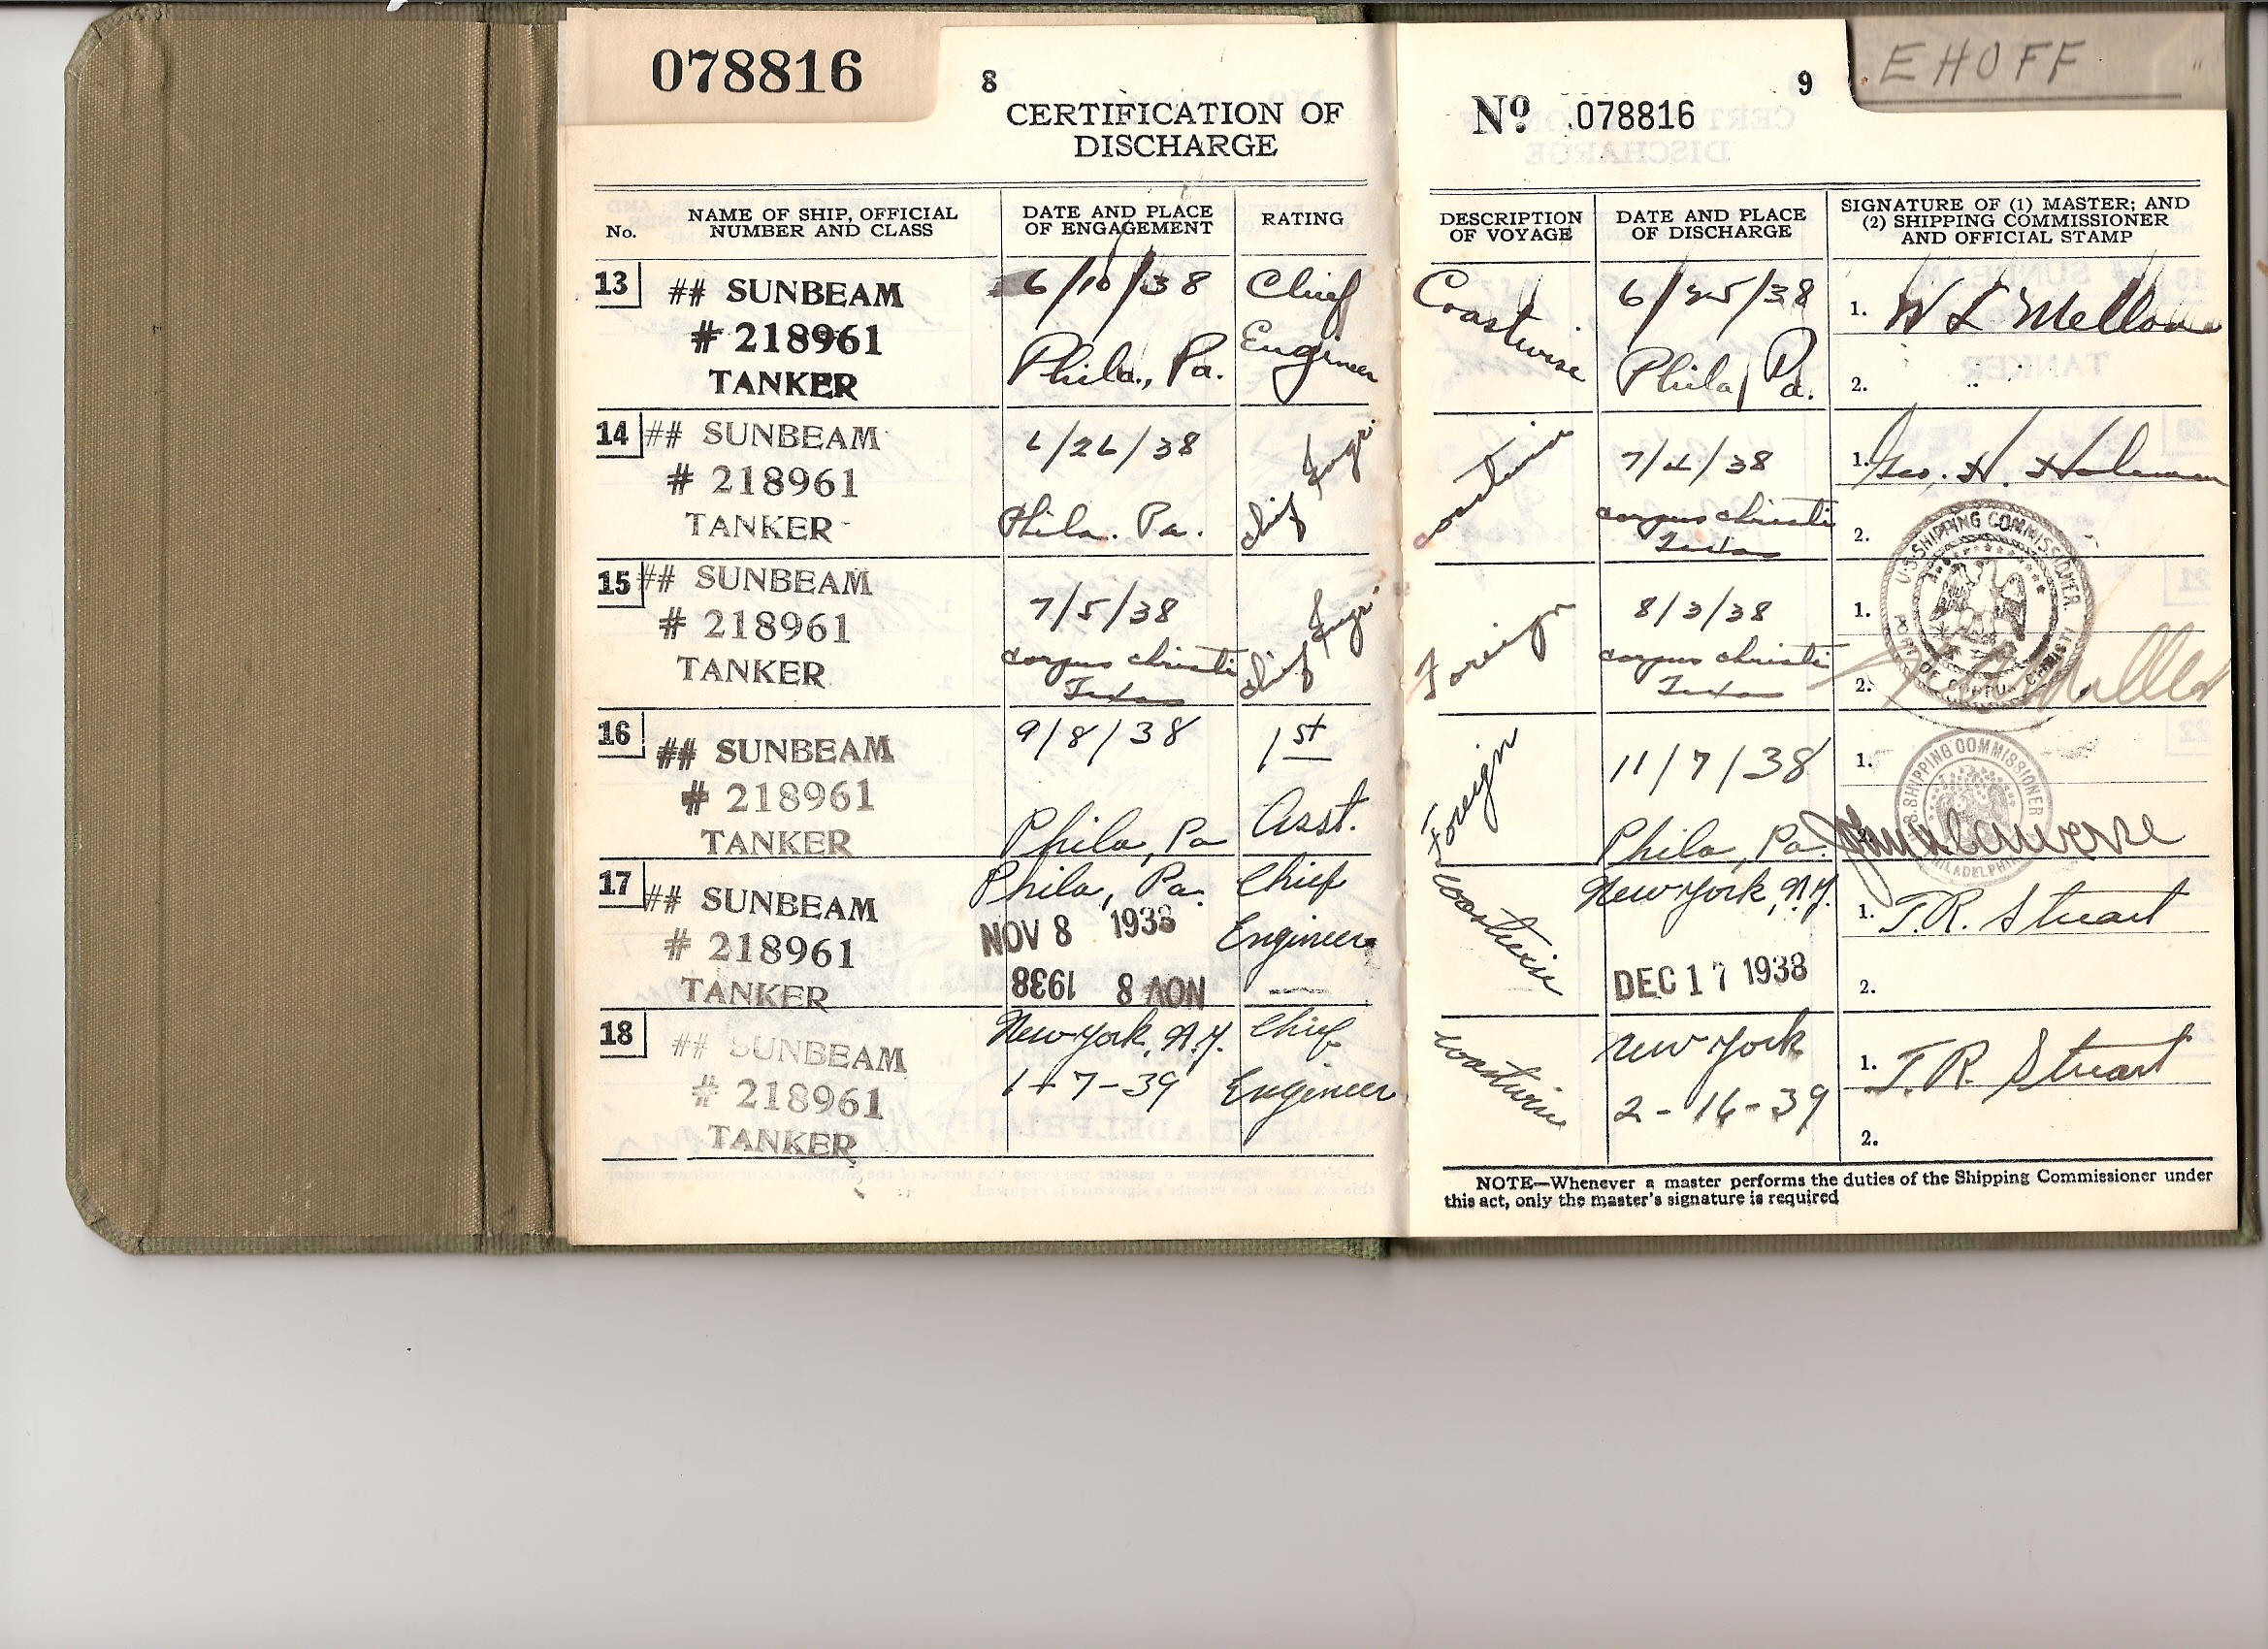 078816
8
CERTIFICATION OF
DISCHARGE
No.
NAME OF SHIP, OFFICIAL
NUMBER AND CLASS
DATE AND PLACE
OF ENGAGEMENT
RATING
13
## SUNBEAM
# 218961
TANKER
6/10/38
Phila., Pa.
Chief
Engineer
14
## SUNBEAM
# 218961
TANKER
6/26/38
Phila. Pa.
chief Engr.
15
## SUNBEAM
# 218961
TANKER
7/5/38
corpus christi
Texas
chief Engr.
16
## SUNBEAM
# 218961
TANKER
9/8/38
Phila, Pa
1st
Asst.
17
## SUNBEAM
# 218961
TANKER
Phila, Pa.
NOV 8 1938
NOV 8 1938
Chief
Engineer
18
## SUNBEAM
# 218961
TANKER
New York, N.Y.
1-7-39
Chief
Engineer
9
EHOFF "
No. 078816
DESCRIPTION
OF VOYAGE
DATE AND PLACE
OF DISCHARGE
SIGNATURE OF (1) MASTER; AND
(2) SHIPPING COMMISSIONER
AND OFFICIAL STAMP
Coastwise
6/25/38
Phila, Pa.
1.
2.
coastwise
7/4/38
corpus christi
Texas
1. Geo. H.
2.
Foreign
8/3/38
corpus christi
Texas
1.
2.
U.S. SHIPPING COMMISSIONER
PORT OF CORPUS CHRISTI
Foreign
11/7/38
Phila, Pa.
1.
U.S. SHIPPING COMMISSIONER
PHILADELPHIA
coastwise
New York, N.Y.
DEC 17 1938
1. T.R. Stuart
2.
coastwise
New York
2-16-39
1. T.R. Stuart
2.
NOTE—Whenever a master performs the duties of the Shipping Commissioner under
this act, only the master's signature is required